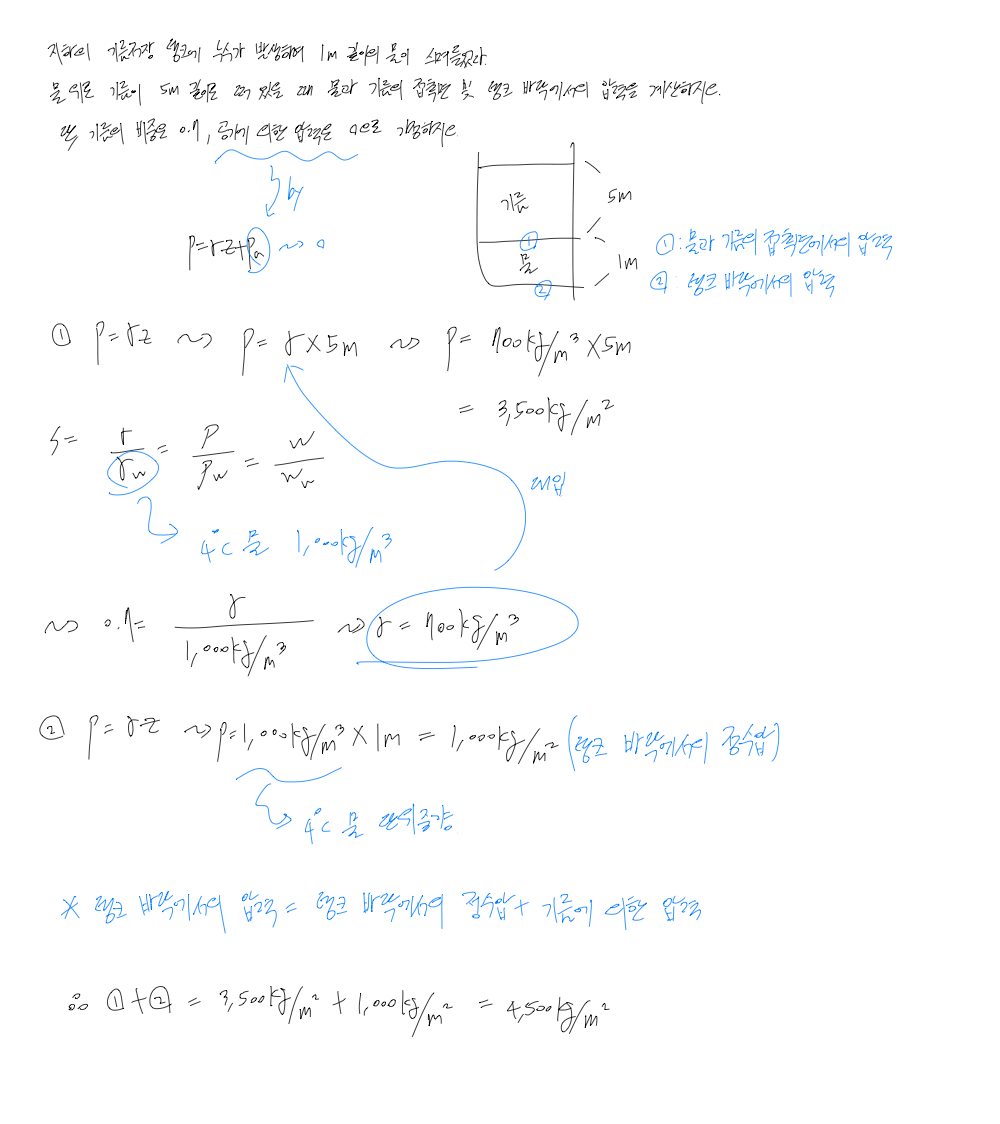 지하의 기름저장 탱크에 누수가 발생하여 1m 깊이의 물이 스며들었다.
물 위로 기름이 5m 깊이로 떠 있을 때 물과 기름의 접촉면 및 탱크 바닥에서의 압력을 계산하시오.
단, 기름의 비중은 0.7, 공기에 의한 압력은 0으로 가정하시오
by
P=γz+Pa ~> 0
기름
5m
①
물
1m
②
①: 물과 기름의 접촉면에서의 압력
②: 탱크 바닥에서의 압력
① P=γz ~> P=γ×5m ~> P= 700kg/m³×5m
= 3,500kg/m²
S= γ/γw = ρ/ρw = W/Ww
대입
4°C 물 1,000kg/m³
~> 0.7= γ/1,000kg/m³ ~> γ = 700kg/m³
② P=γz ~> P=1,000kg/m³×1m = 1,000kg/m² (탱크 바닥에서의 정수압)
4°C 물 단위중량
* 탱크 바닥에서의 압력 = 탱크 바닥에서의 정수압 + 기름에 의한 압력
∴ ①+② = 3,500kg/m² + 1,000kg/m² = 4,500kg/m²